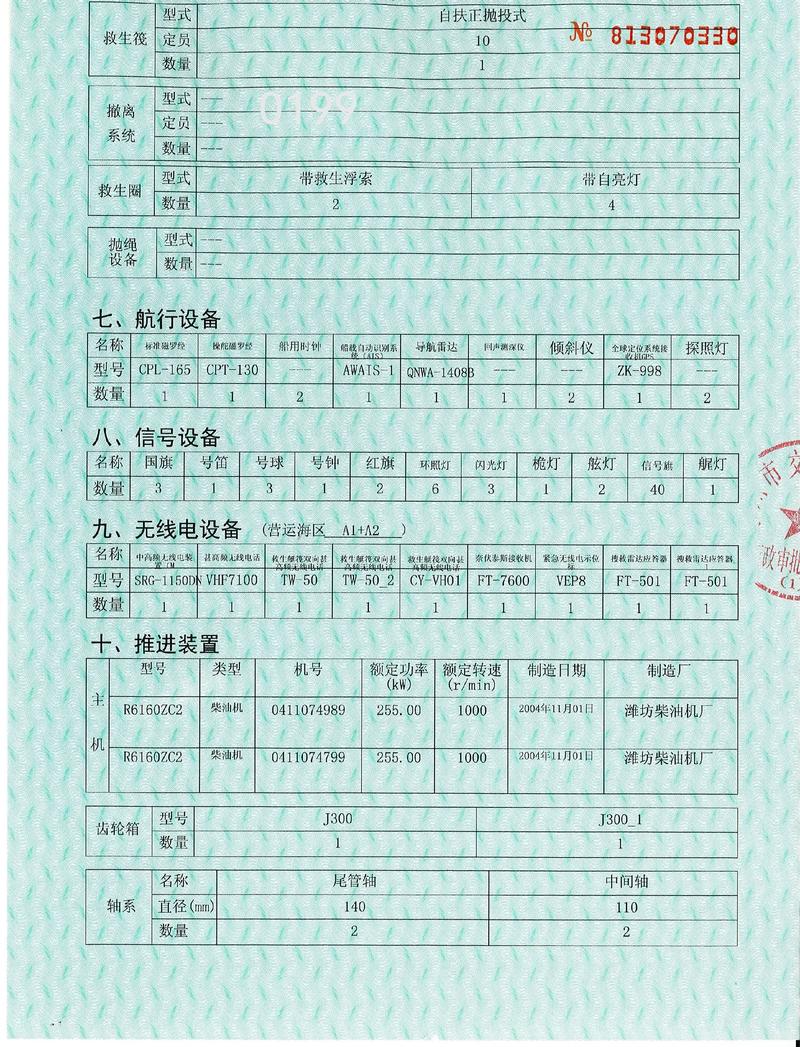 № 813070330
救生筏 型式 自扶正抛投式
定员 10
数量 1
0199
撤离系统 型式 ---
定员 ---
数量 ---
救生圈 型式 带救生浮索 带自亮灯
数量 2 4
抛绳设备 型式 ---
数量 ---
七、航行设备
名称 标准磁罗经 操舵磁罗经 船用时钟 船载自动识别系统(AIS) 导航雷达 回声测深仪 倾斜仪 全球定位系统接收机GPS 探照灯
型号 CPL-165 CPT-130 --- AWAIS-1 QNWA-1408B --- --- ZK-998 ---
数量 1 1 2 1 1 1 2 1 2
八、信号设备
名称 国旗 号笛 号球 号钟 红旗 环照灯 闪光灯 桅灯 舷灯 信号旗 艉灯
数量 3 1 3 1 2 6 3 1 2 40 1
九、无线电设备 (营运海区 A1+A2 )
名称 中高频无线电装置 甚高频无线电话 救生艇筏双向甚高频无线电话 救生艇筏双向甚高频无线电话 救生艇筏双向甚高频无线电话 奈伏泰斯接收机 紧急无线电示位标 搜救雷达应答器 搜救雷达应答器
型号 SRG-1150DN VHF7100 TW-50 TW-50_2 CY-VH01 FT-7600 VEP8 FT-501 FT-501
数量 1 1 1 1 1 1 1 1 1
十、推进装置
主机 型号 类型 机号 额定功率(kW) 额定转速(r/min) 制造日期 制造厂
R6160ZC2 柴油机 0411074989 255.00 1000 2004年11月01日 潍坊柴油机厂
R6160ZC2 柴油机 0411074799 255.00 1000 2004年11月01日 潍坊柴油机厂
齿轮箱 型号 J300 J300_1
数量 1 1
轴系 名称 尾管轴 中间轴
直径(mm) 140 110
数量 2 2
市交
政审批
(1)